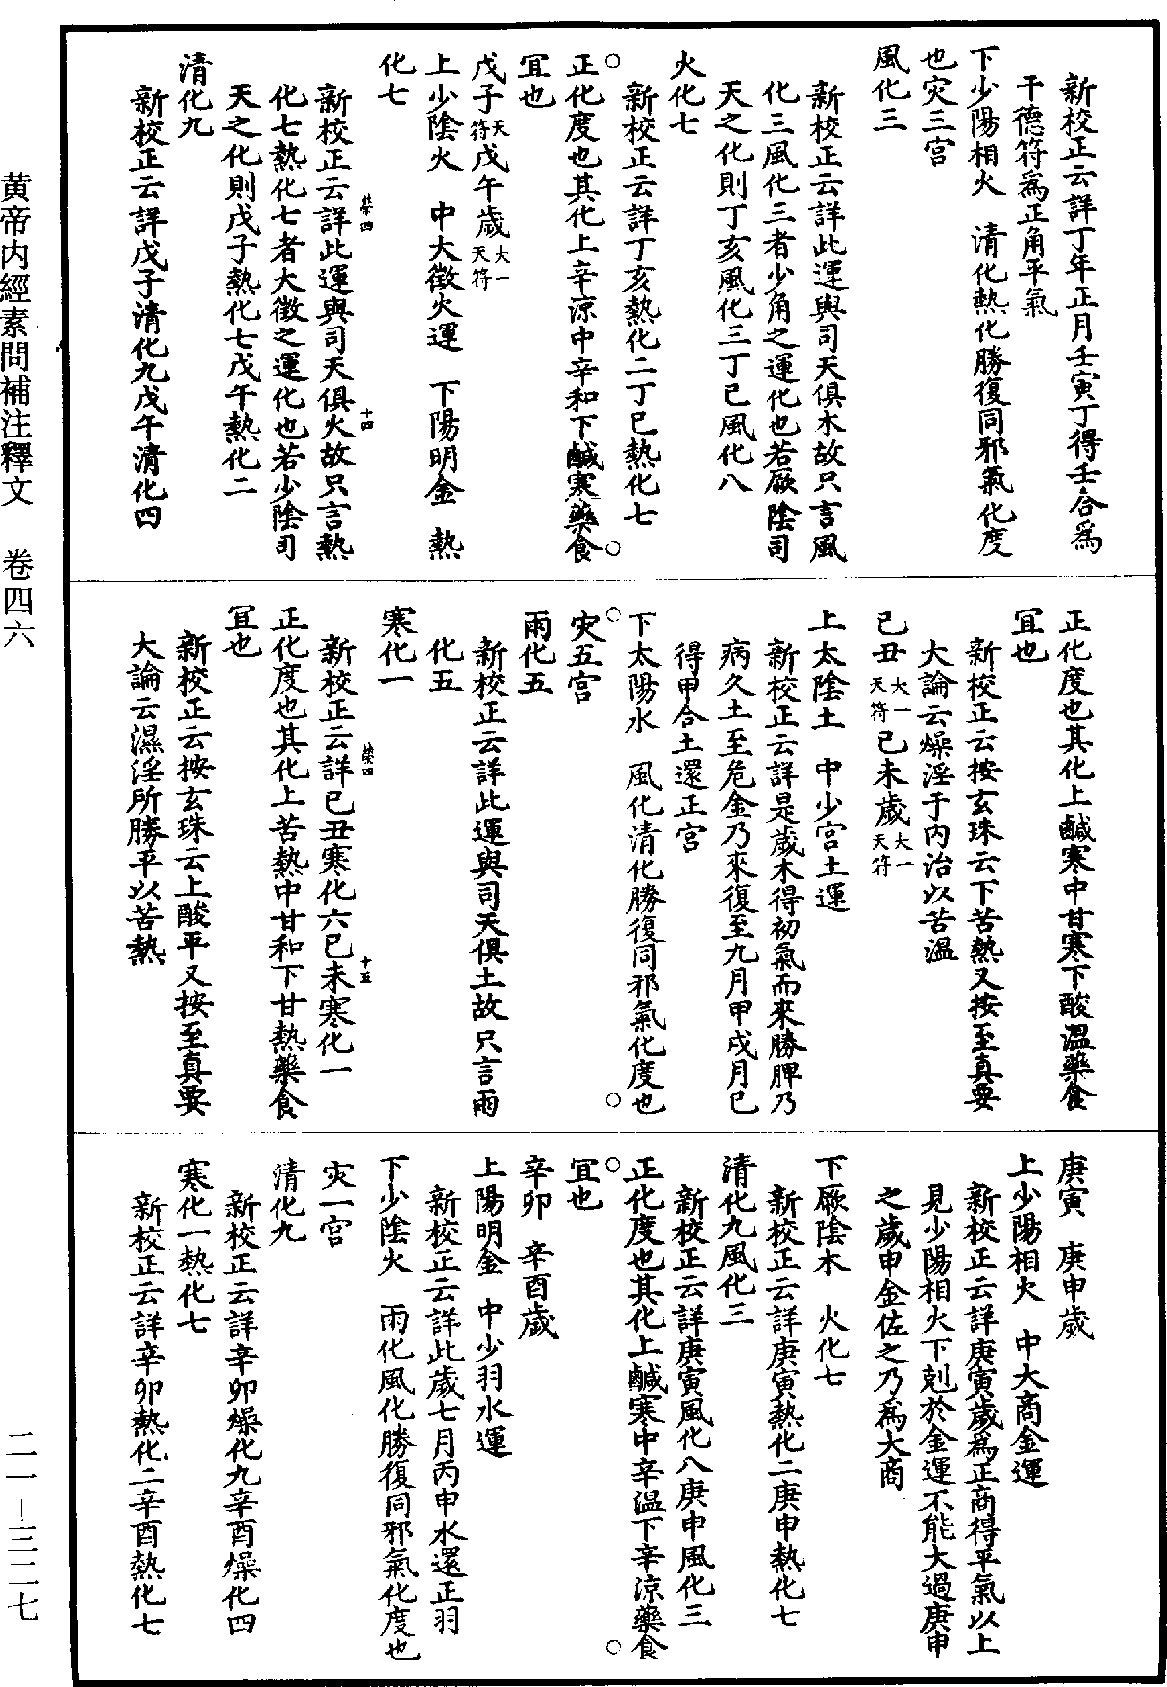 新校正云詳丁年正月壬寅丁得壬合爲
干德符爲正角平氣
下少陽相火　清化熱化勝復同邪氣化度
也灾三宮
風化三
新校正云詳此運與司天俱木故只言風
化三風化三者少角之運化也若厥陰司
天之化則丁亥風化三丁巳風化八
火化七
新校正云詳丁亥熱化二丁巳熱化七
正化度也其化上辛涼中辛和下鹹寒藥食
宜也
戊子天符戊午歲大一天符
上少陰火　中大徵火運　下陽明金　熱
化七
新校正云詳此運與司天俱火故只言熱
化七熱化七者大徵之運化也若少陰司
天之化則戊子熱化七戊午熱化二
清化九
新校正云詳戊子清化九戊午清化四
榮四
十四
正化度也其化上鹹寒中甘寒下酸溫藥食
宜也
新校正云按玄珠云下苦熱又按至真要
大論云燥淫于内治以苦溫
己丑大一天符己未歲大一天符
上太陰土　中少宮土運
新校正云詳是歲木得初氣而來勝脾乃
病久土至危金乃來復至九月甲戌月己
得甲合土還正宮
下太陽水　風化清化勝復同邪氣化度也
灾五宮
雨化五
新校正云詳此運與司天俱土故只言雨
化五
寒化一
新校正云詳己丑寒化六己未寒化一
榮四
十五
正化度也其化上苦熱中甘和下甘熱藥食
宜也
新校正云按玄珠云上酸平又按至真要
大論云濕淫所勝平以苦熱
庚寅　庚申歲
上少陽相火　中大商金運
新校正云詳庚寅歲爲正商得平氣以上
見少陽相火下剋於金運不能大過庚申
之歲申金佐之乃爲大商
下厥陰木　火化七
新校正云詳庚寅熱化二庚申熱化七
清化九風化三
新校正云詳庚寅風化八庚申風化三
正化度也其化上鹹寒中辛溫下辛涼藥食
宜也
辛卯　辛酉歲
上陽明金　中少羽水運
新校正云詳此歲七月丙申水還正羽
下少陰火　雨化風化勝復同邪氣化度也
灾一宮
清化九
新校正云詳辛卯燥化九辛酉燥化四
寒化一熱化七
新校正云詳辛卯熱化二辛酉熱化七
黄帝内經素問補注釋文　卷四六
二一—三二七